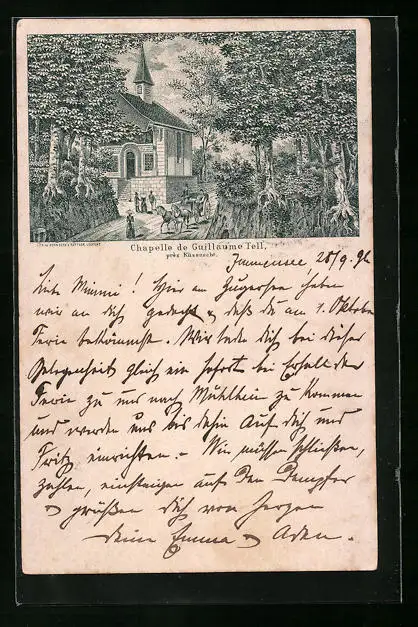 Chapelle de Guillaume Tell,
près Küssnacht.
Immensee 28/9. 92
Liebe Minni! Hier am Zugersee haben
wir an dich gedacht & daß du am 1. Oktober
Ferie bekömmst. Wir laden dich bei dieser
Gelegenheit gleich ein sofort bei Erhalt der
Ferie zu uns nach zu kommen
und werden uns bis dahin auf dich und
Fritz einrichten. – Wir müssen schließen,
zahlen, einsteigen auf den Dampfer
& grüßen dich von Herzen
deine Emma &